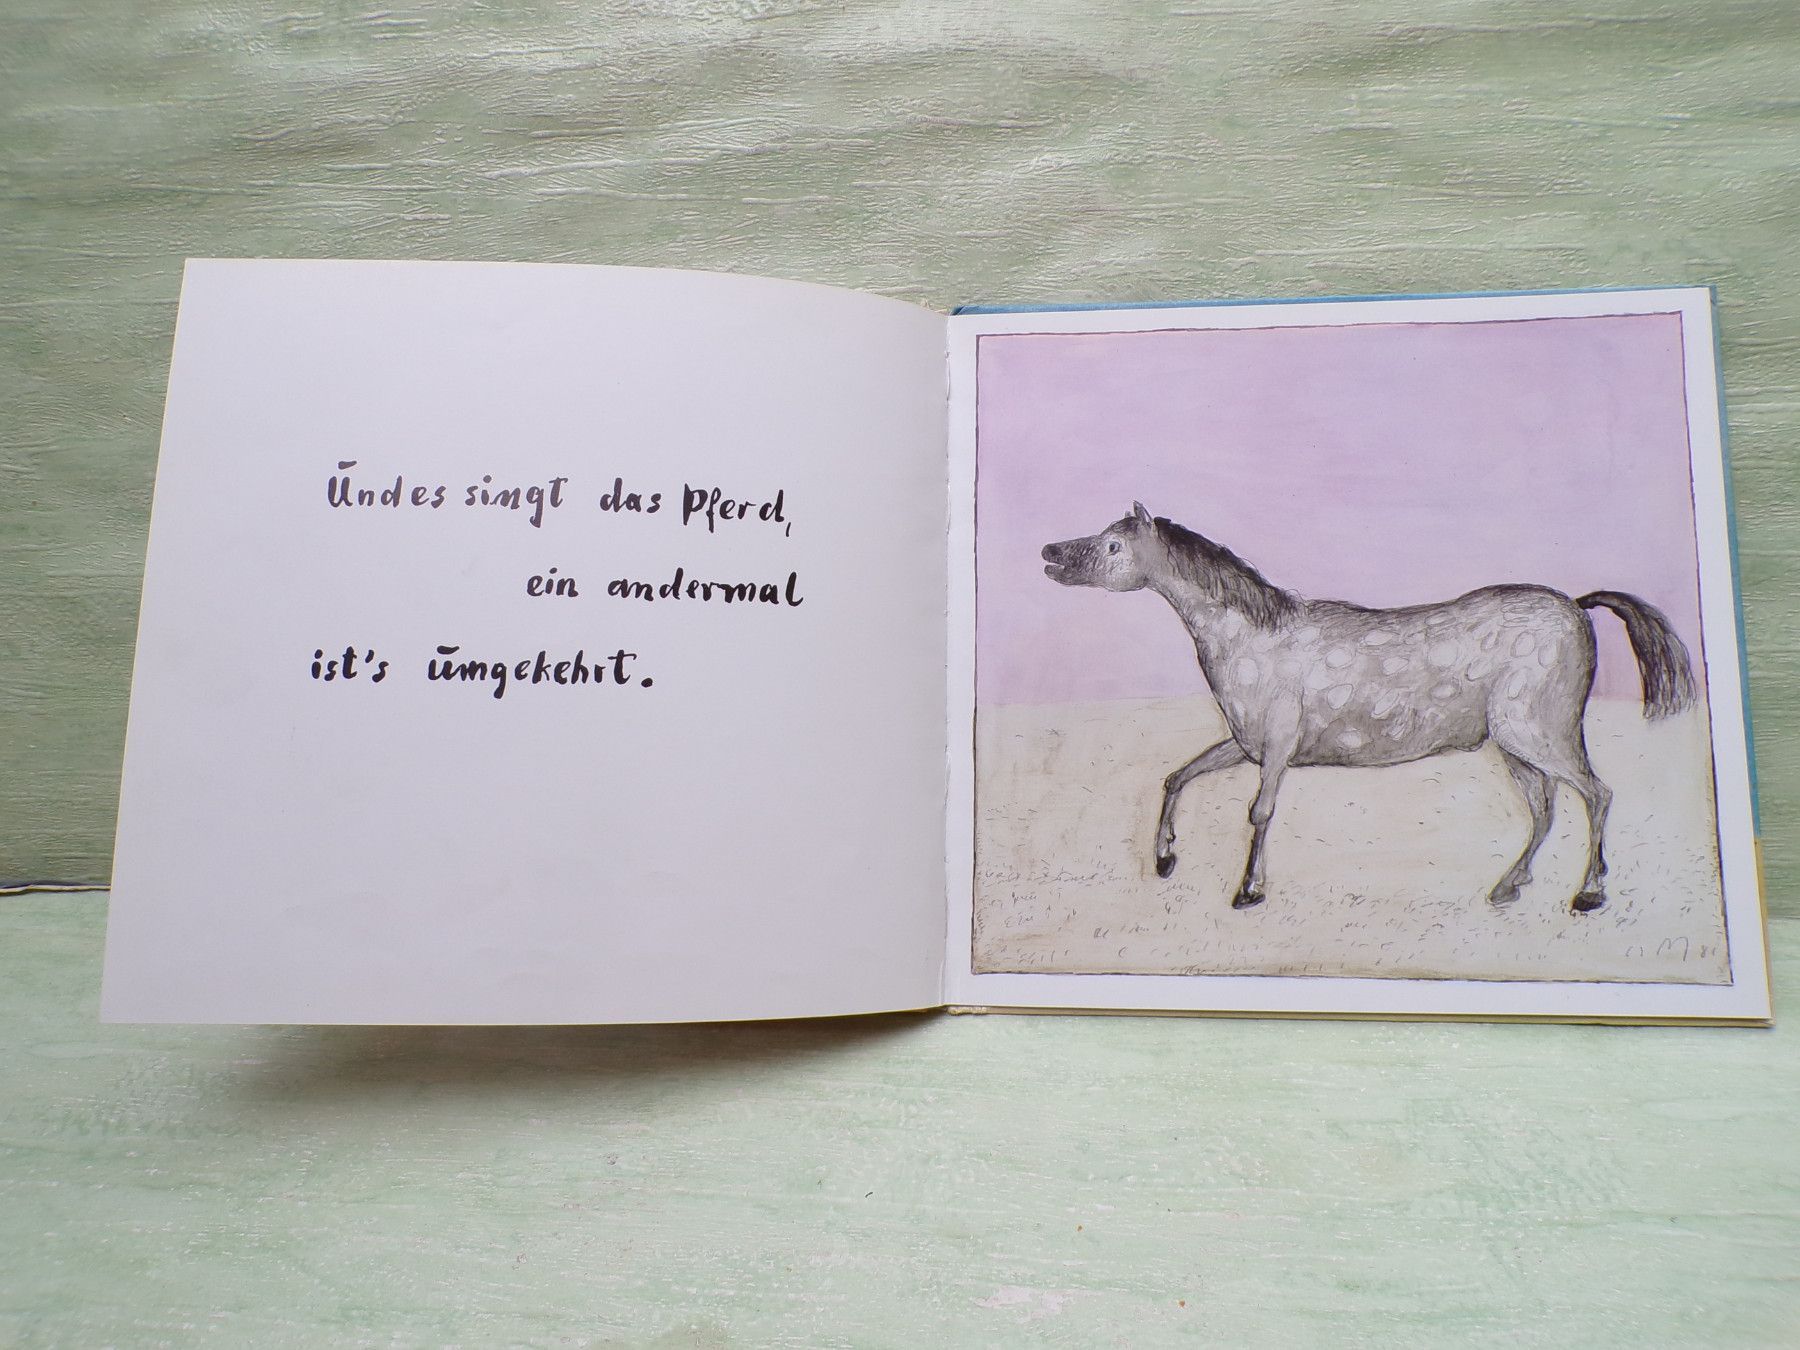 Ūndes singt das Pferd,
ein andermal
ist's ūmgekehrt.